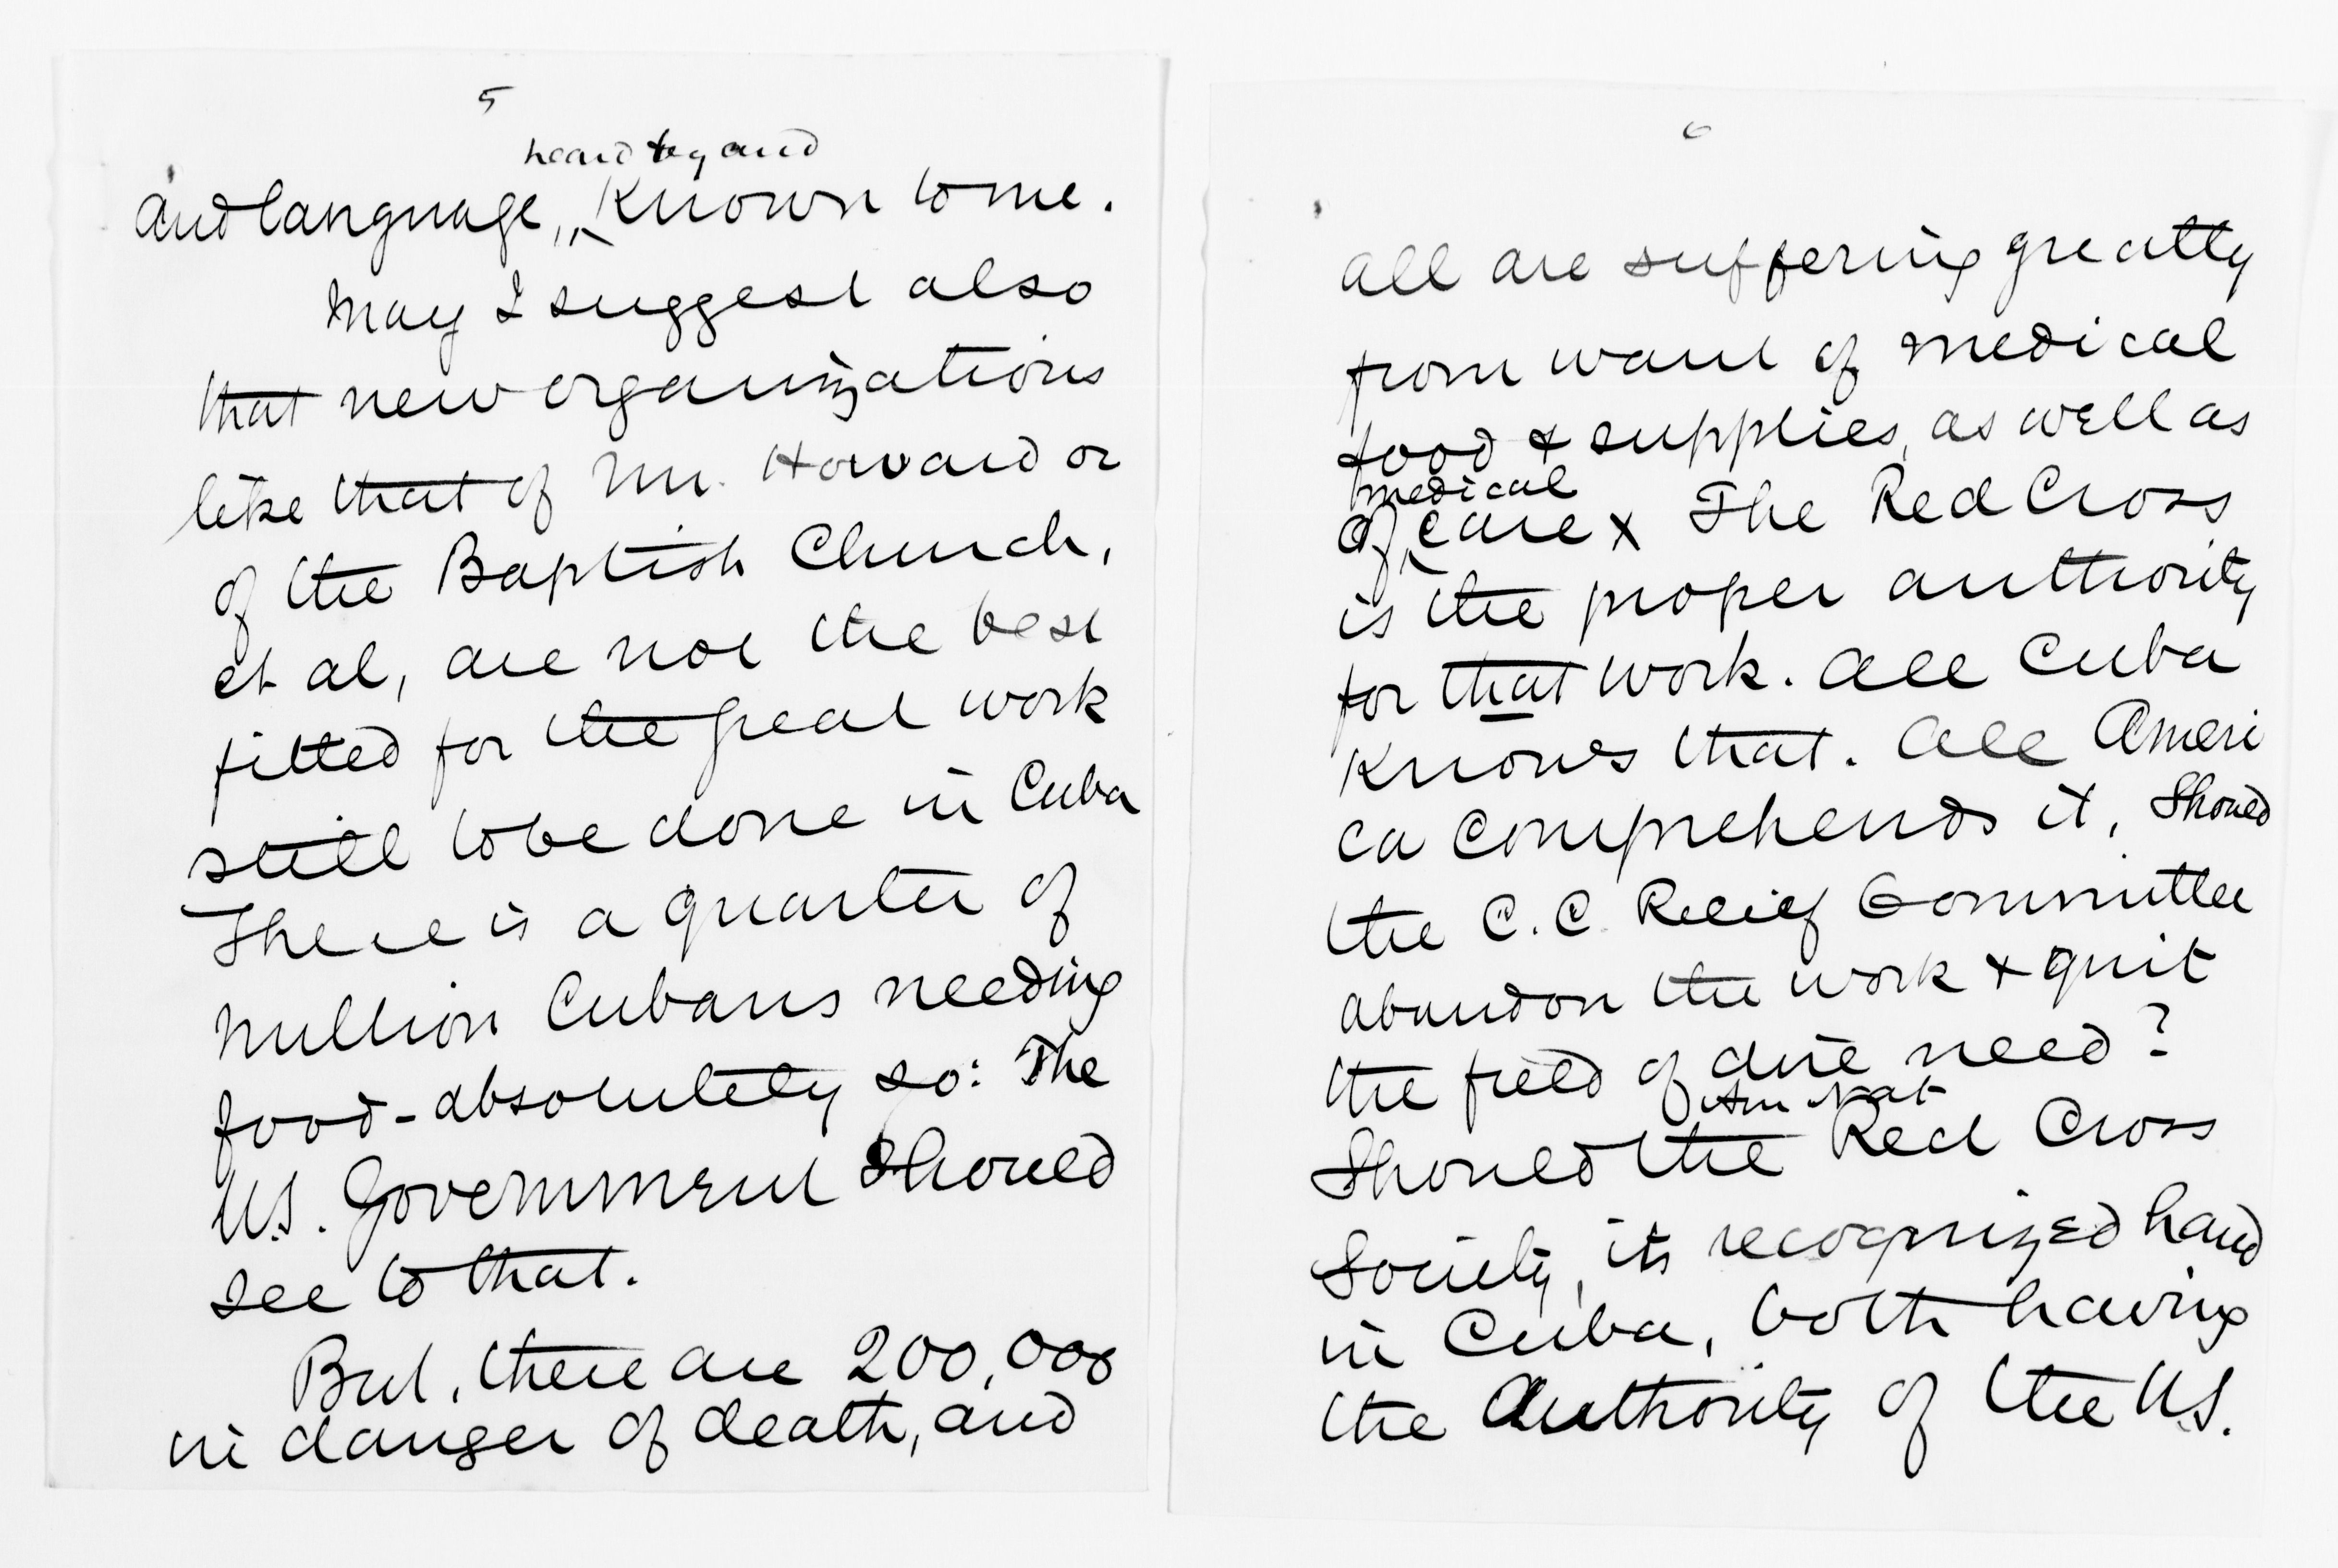 5
heard by and
and language, known to me.
May I suggest also
that new organizations
like that of Mr. Howard or
of the Baptist Church,
et al, are not the best
fitted for the great work
still to be done in Cuba
There is a quarter of
million Cubans needing
food - absolutely so: The
U.S. Government should
see to that.
But, there are 200,000
in danger of death, and
6
all are suffering greatly
from want of medical
food & supplies, as well as
medical
of care x The Red Cross
is the proper authority
for that work. All Cuba
knows that. All Ameri
ca comprehends it, Should
the C.C. Relief Committee
abandon the work & quit
the field of dire need?
Am Nat
Should the Red Cross
Society, its recognized hand
in Cuba, both having
the Authority of the U.S.